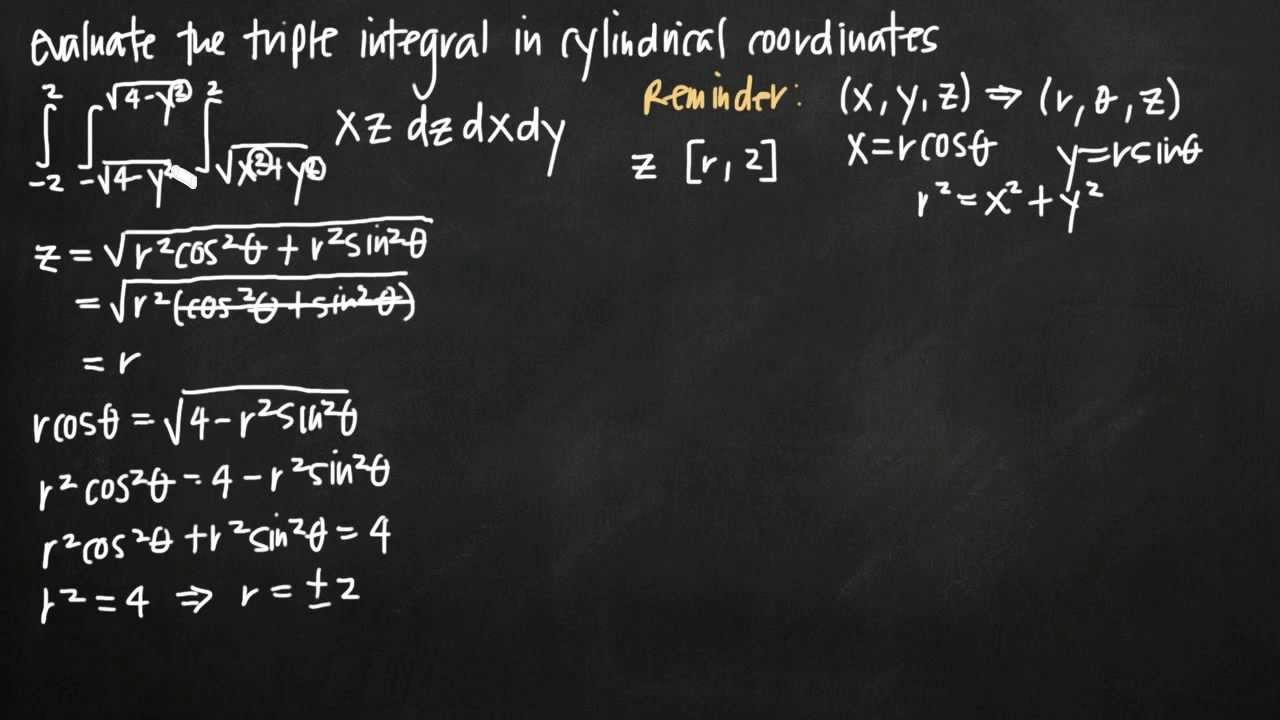 evaluate the triple integral in cylindrical coordinates
∫_{-2}^{2} ∫_{-√(4-y²)}^{√(4-y²)} ∫_{√(x²+y²)}^{2} xz dz dx dy
Reminder: (x, y, z) ⇒ (r, θ, z)
x = r cosθ y = r sinθ
r² = x² + y²
z [r, 2]
z = √(r²cos²θ + r²sin²θ)
= √(r²(cos²θ + sin²θ))
= r
r cosθ = √(4 - r²sin²θ)
r²cos²θ = 4 - r²sin²θ
r²cos²θ + r²sin²θ = 4
r² = 4 ⇒ r = ±2